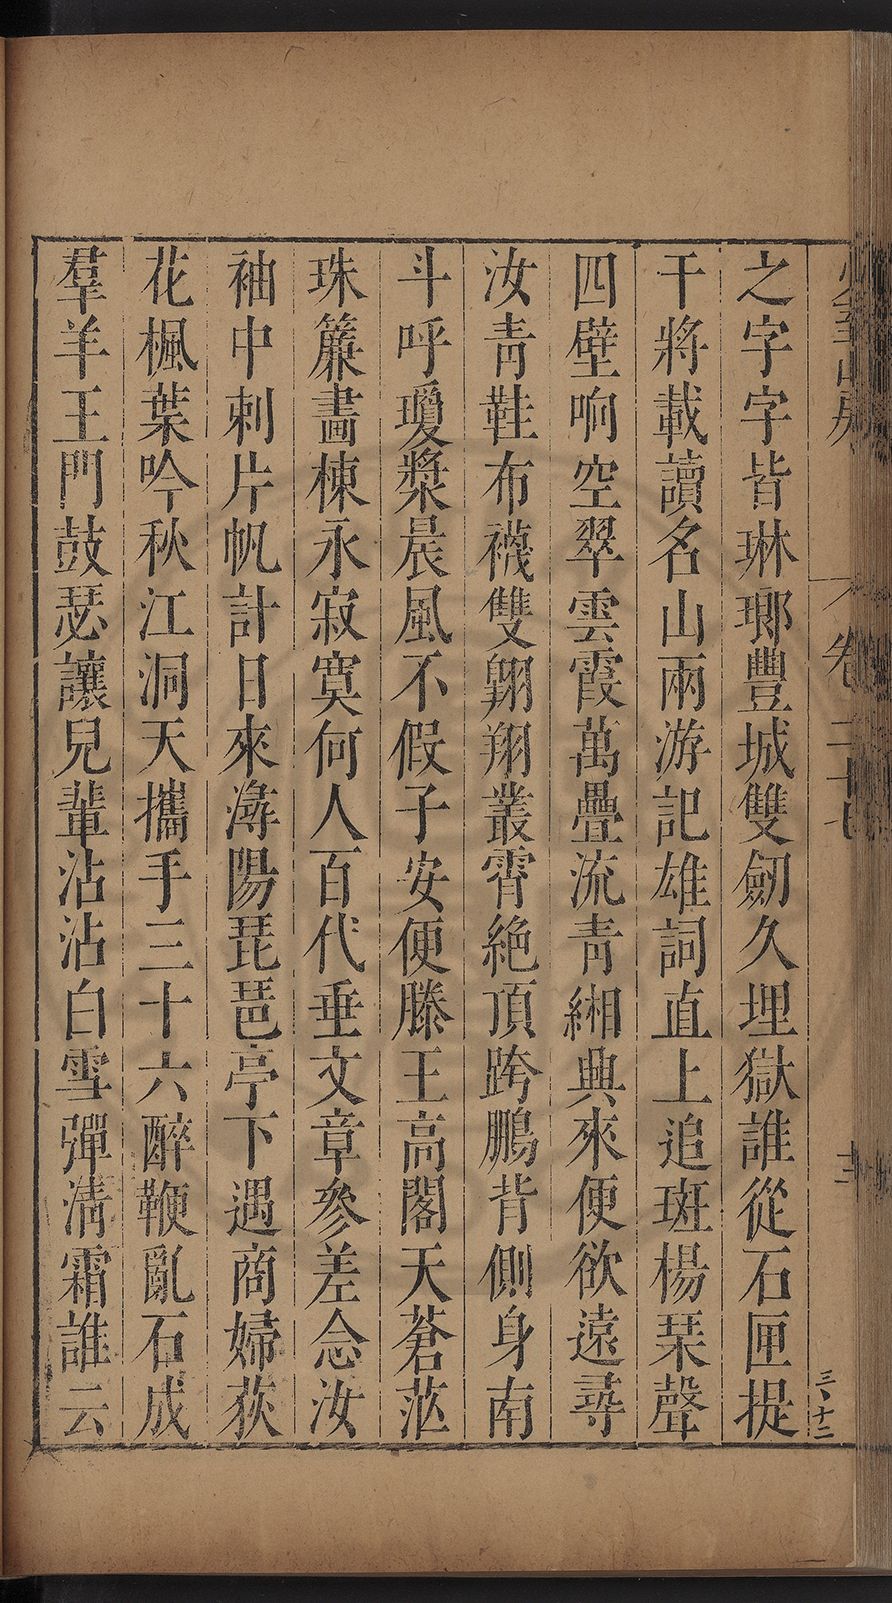 之字字皆琳瑯豐城雙劒久埋獄誰從石匣提
干將載讀名山兩游記雄詞直上追班楊琹聲
四壁响空翠雲霞萬疊流青緗興來便欲遠尋
汝青鞋布襪雙翺翔叢霄絶頂跨鵬背側身南
斗呼瓊漿晨風不假子安便滕王高閣天蒼茫
珠簾畵棟永寂寞何人百代垂文章參差念汝
袖中刺片帆計日來潯陽琵琶亭下遇商婦荻
花楓葉吟秋江洞天攜手三十六醉鞭亂石成
羣羊王門鼓瑟讓兒輩沾沾白雪彈淸霜誰云
卷二十七
三、十二